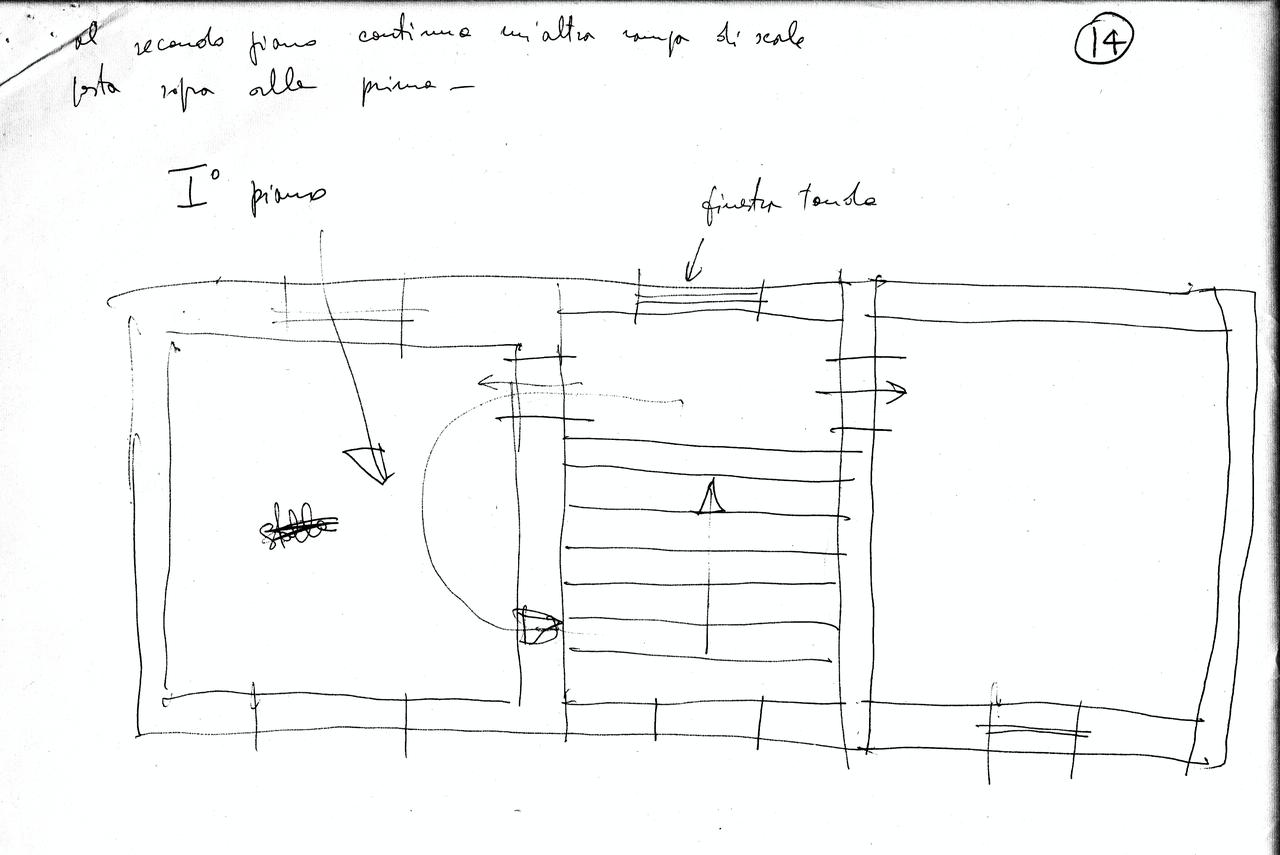 al secondo piano continua un'altra rampa di scale
14
posta sopra alla prima –
I° piano
finestra tonda